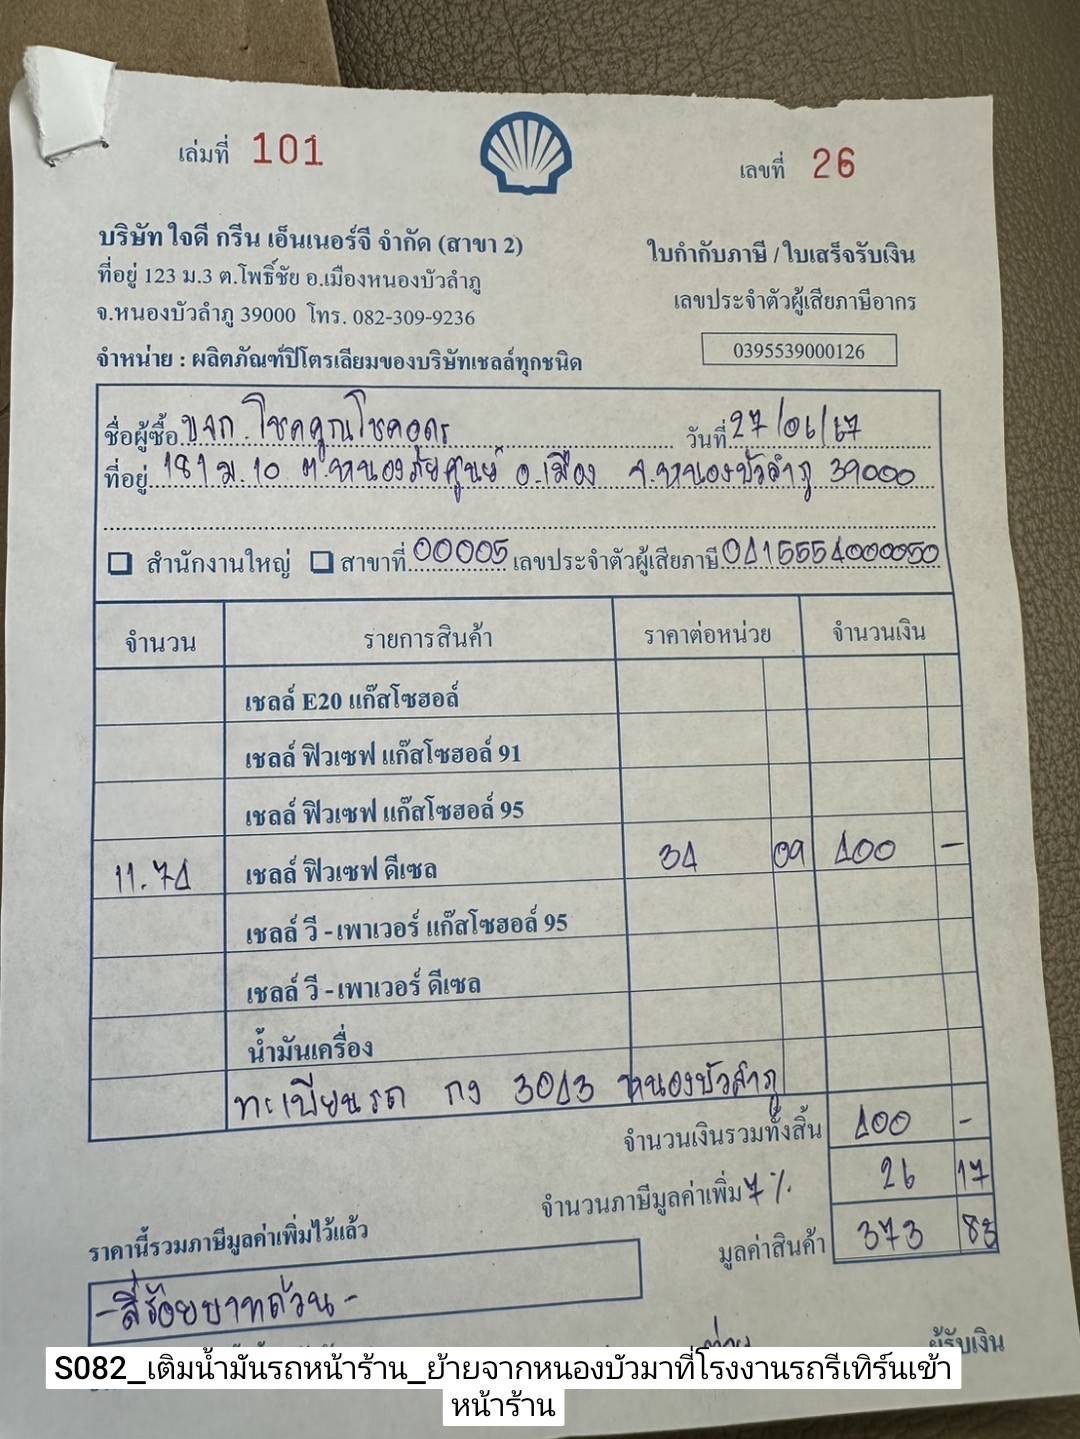 เล่มที่ 101
เลขที่ 26
บริษัท ใจดี กรีน เอ็นเนอร์จี จำกัด (สาขา 2)
ใบกำกับภาษี / ใบเสร็จรับเงิน
ที่อยู่ 123 ม.3 ต.โพธิ์ชัย อ.เมืองหนองบัวลำภู
เลขประจำตัวผู้เสียภาษีอากร
จ.หนองบัวลำภู 39000 โทร. 082-309-9236
0395539000126
จำหน่าย : ผลิตภัณฑ์ปิโตรเลียมของบริษัทเชลล์ทุกชนิด
ชื่อผู้ซื้อ บจก. โชคคูณโชคอุดร วันที่ 27/06/67
ที่อยู่ 181 ม.10 ต.หนองภัยศูนย์ อ.เมือง จ.หนองบัวลำภู 39000
สำนักงานใหญ่ สาขาที่ 00005 เลขประจำตัวผู้เสียภาษี 0415554000050
จำนวน รายการสินค้า ราคาต่อหน่วย จำนวนเงิน
เชลล์ E20 แก๊สโซฮอล์
เชลล์ ฟิวเซฟ แก๊สโซฮอล์ 91
เชลล์ ฟิวเซฟ แก๊สโซฮอล์ 95
11.74 เชลล์ ฟิวเซฟ ดีเซล 34 09 400 -
เชลล์ วี - เพาเวอร์ แก๊สโซฮอล์ 95
เชลล์ วี - เพาเวอร์ ดีเซล
น้ำมันเครื่อง
ทะเบียนรถ กง 3043 หนองบัวลำภู
จำนวนเงินรวมทั้งสิ้น 400 -
จำนวนภาษีมูลค่าเพิ่ม 7 % 26 17
ราคานี้รวมภาษีมูลค่าเพิ่มไว้แล้ว
มูลค่าสินค้า 373 83
- สี่ร้อยบาทถ้วน -
ผู้รับเงิน
S082_เติมน้ำมันรถหน้าร้าน_ย้ายจากหนองบัวมาที่โรงงานรถรีเทิร์นเข้า
หน้าร้าน